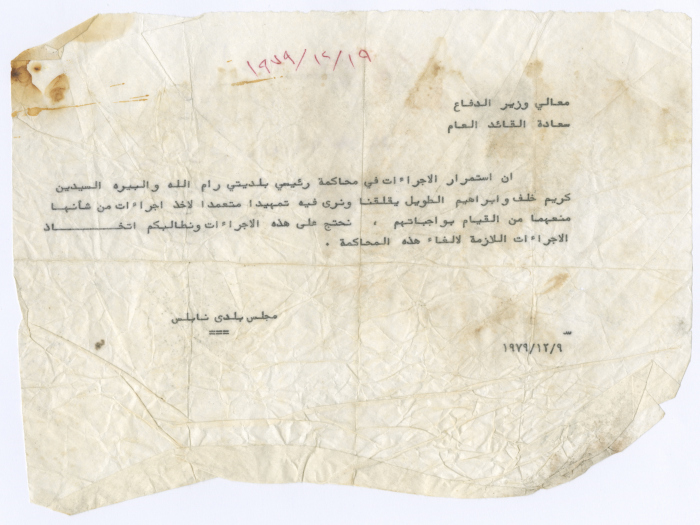 ١٩٧٩/١٢/١٩
معالي وزير الدفاع
سعادة القائد العام
ان استمرار الاجراءات في محاكمة رئيسي بلديتي رام الله والبيره السيدين
كريم خلف وابراهيم الطويل يقلقنا ونرى فيه تمهيدا متعمدا لاخذ اجراءات من شأنها
منعهما من القيام بواجباتهم . نحتج على هذه الاجراءات ونطالبكم اتخـــــــاذ
الاجراءات اللازمة لالغاء هذه المحاكمة .
مجلس بلدى نابلس
===
١٩٧٩/١٢/٩